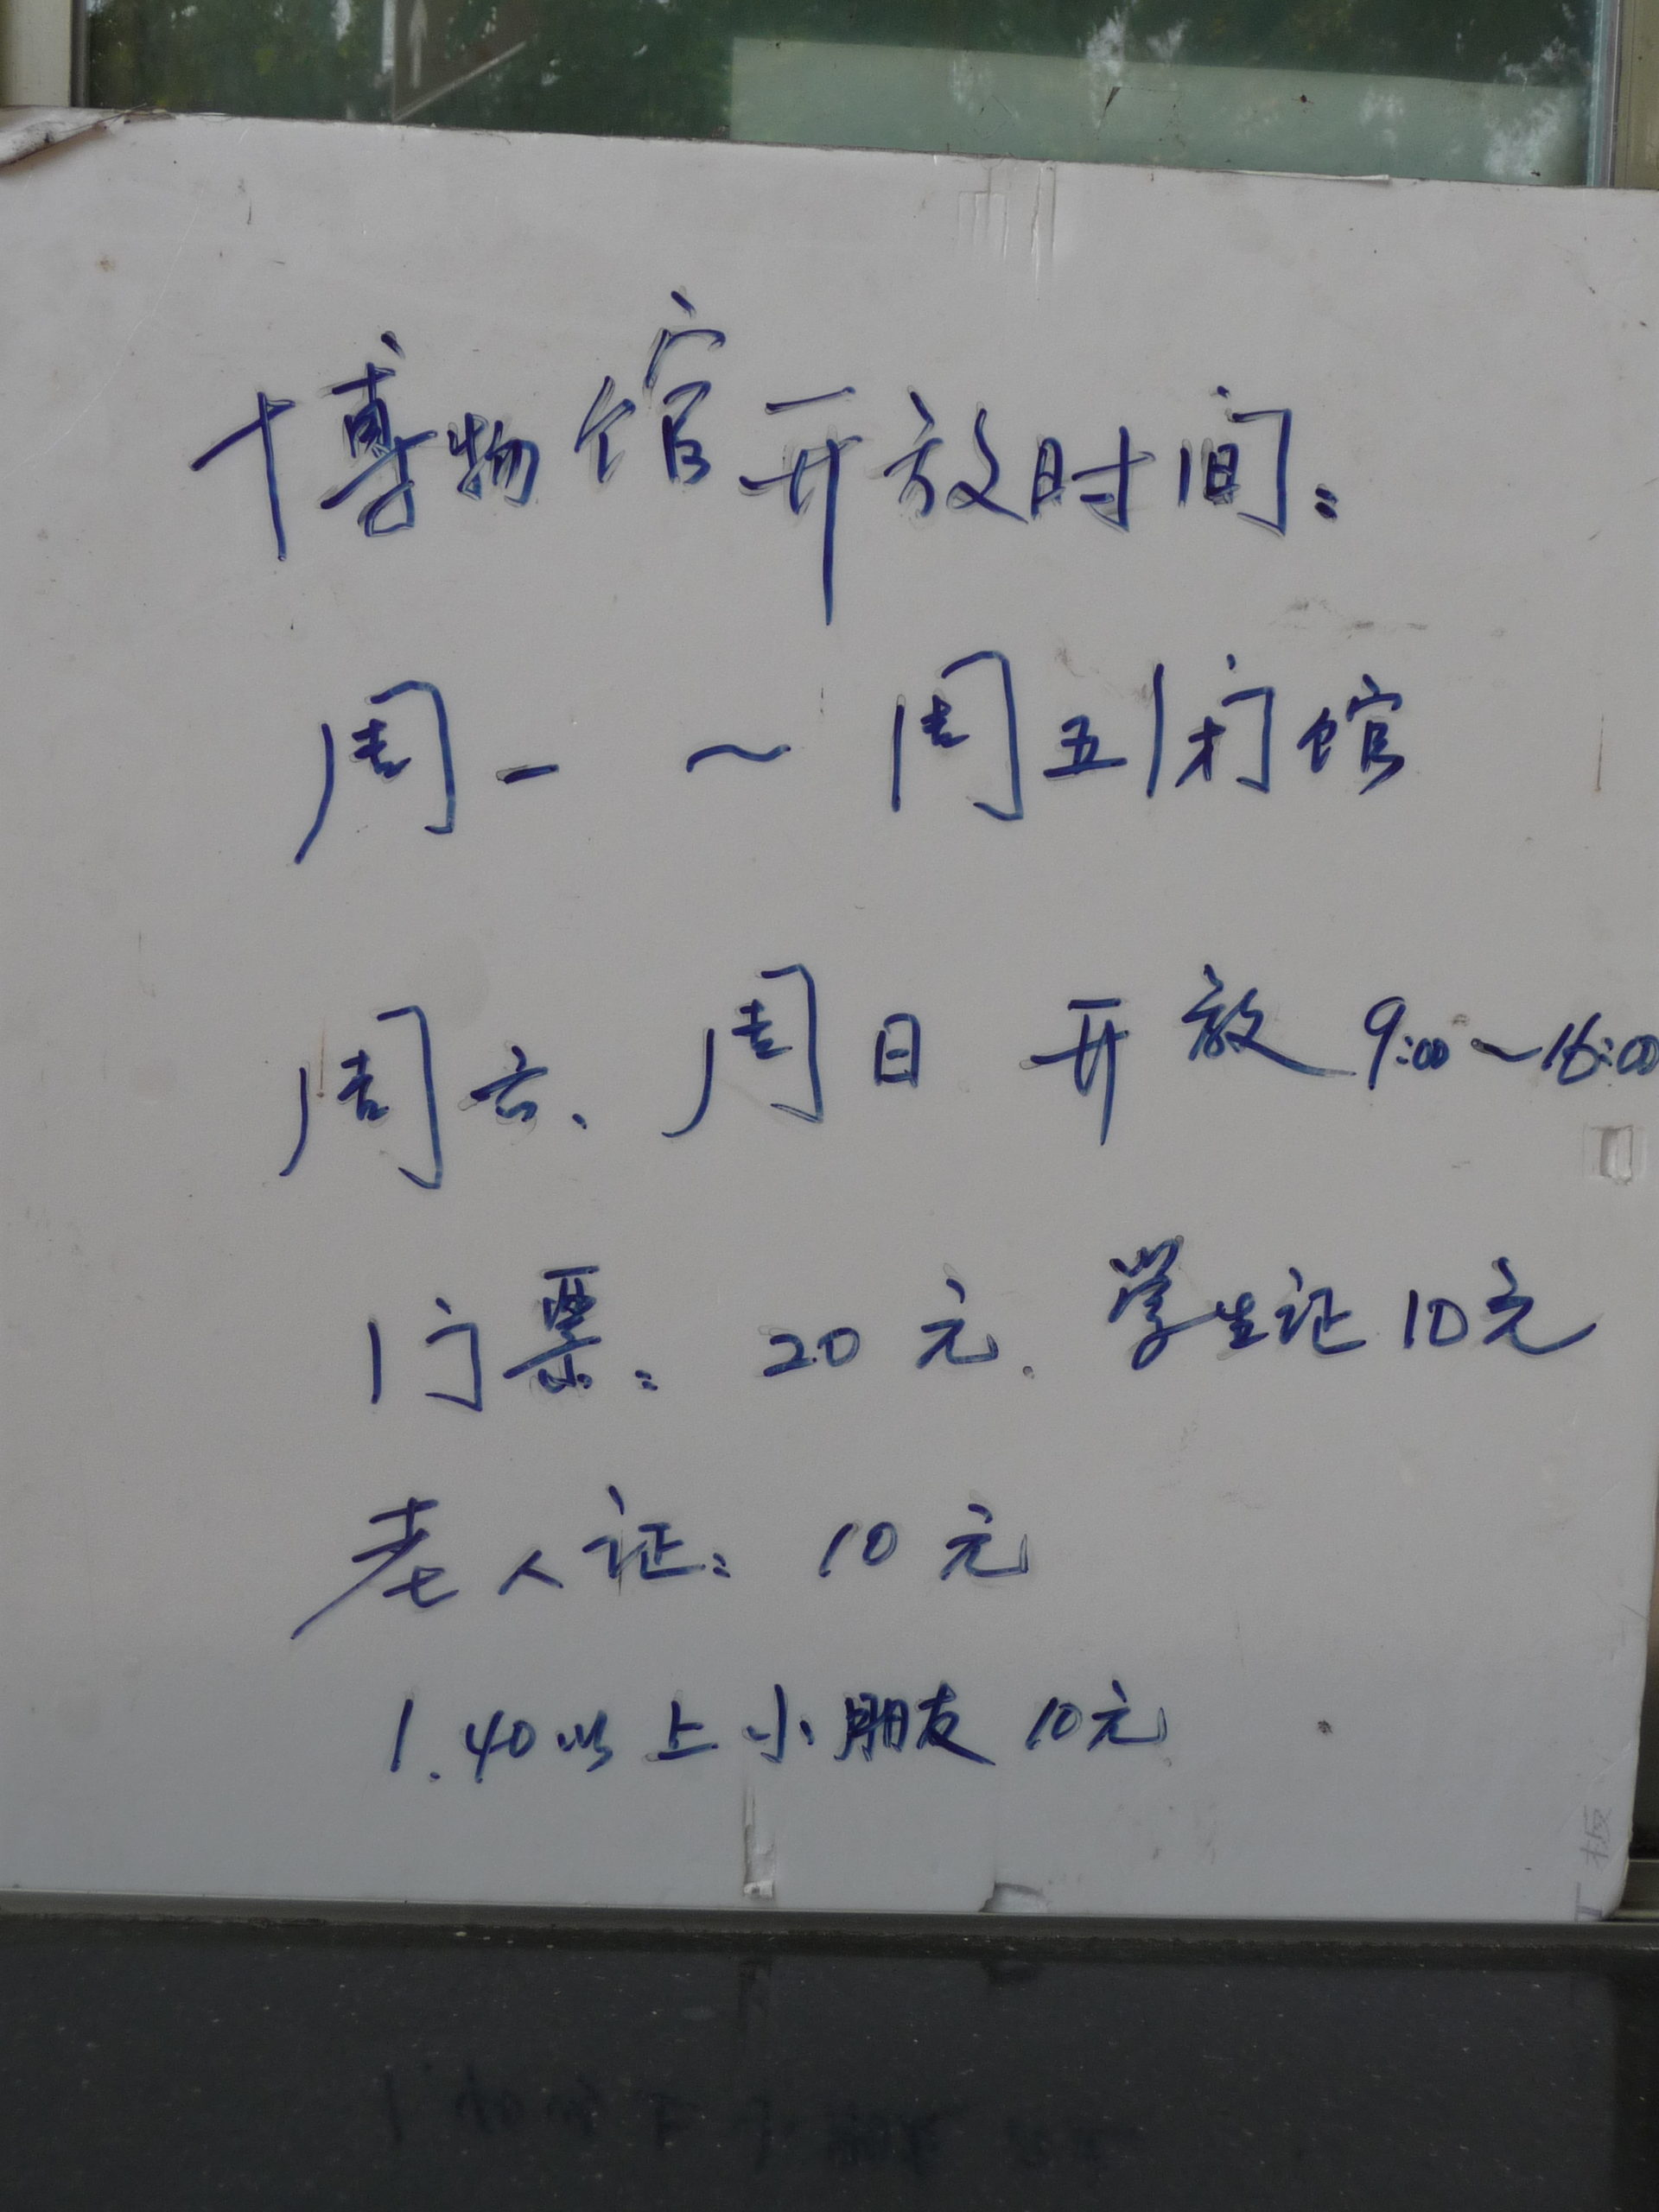 博物馆开放时间：
周一～周五闭馆
周六、周日 开放 9:00～16:00
门票：20元. 学生证10元
老人证：10元
1.40以上小朋友10元